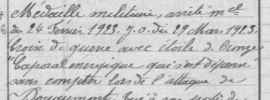 Médaille militaire, arrêté mel
du 24 février 1923. J.O. du 29 Mars 1923.
Croix de guerre avec étoile de bronze
"Caporal énergique qui s'est dépensé
sans compter lors de l'attaque de
Douaumont